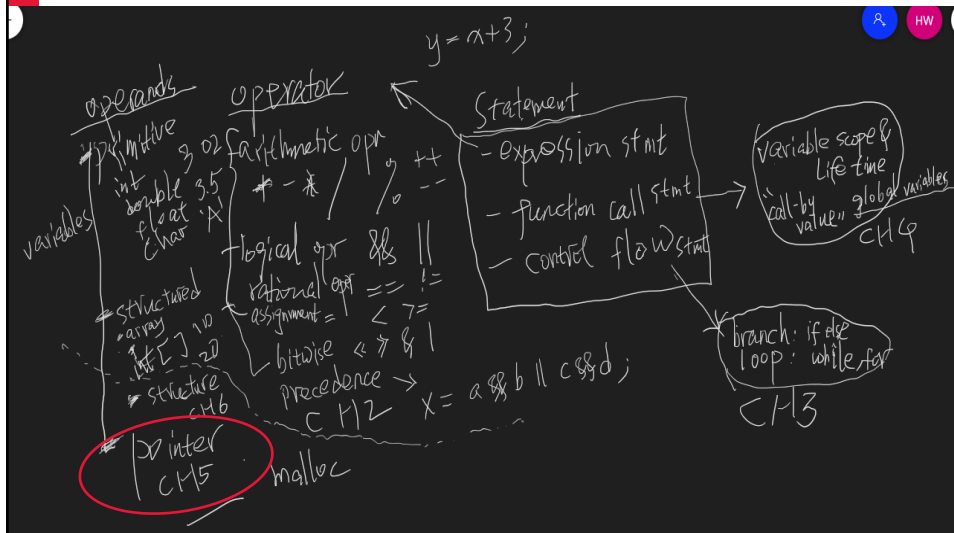 HW
y = x+3;
operands
primitive
int 3, 02f
double 3.5
float 'A'
char
variables
structured
.array
int [ ] 1D
2D
structure
CH6
pointer
CH5
malloc
operator
arithmetic opr
+ - * / , ++
% --
logical opr && ||
rational opr == !=
assignment = < >=
bitwise << >> & |
precedence →
CH2 x = a && b || c && d ;
Statement
- expression stmt
- function call stmt
- control flow stmt
variable scope &
Life time
global variables
"call-by
value"
CH4
branch: if else
loop: while, for
CH3